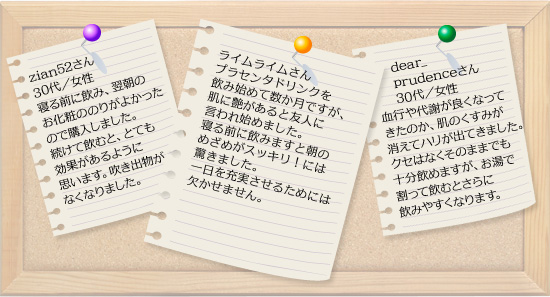 zian52さん
30代／女性
寝る前に飲み、翌朝の
お化粧ののりがよかった
ので購入しました。
続けて飲むと、とても
効果があるように
思います。吹き出物が
なくなりました。
ライムライムさん
プラセンタドリンクを
飲み始めて数か月ですが、
肌に艶があると友人に
言われ始めました。
寝る前に飲みますと朝の
めざめがスッキリ！には
驚きました。
一日を充実させるためには
欠かせません。
dear_
prudenceさん
30代／女性
血行や代謝が良くなって
きたのか、肌のくすみが
消えてハリが出てきました。
クセはなくそのままでも
十分飲めますが、お湯で
割って飲むとさらに
飲みやすくなります。